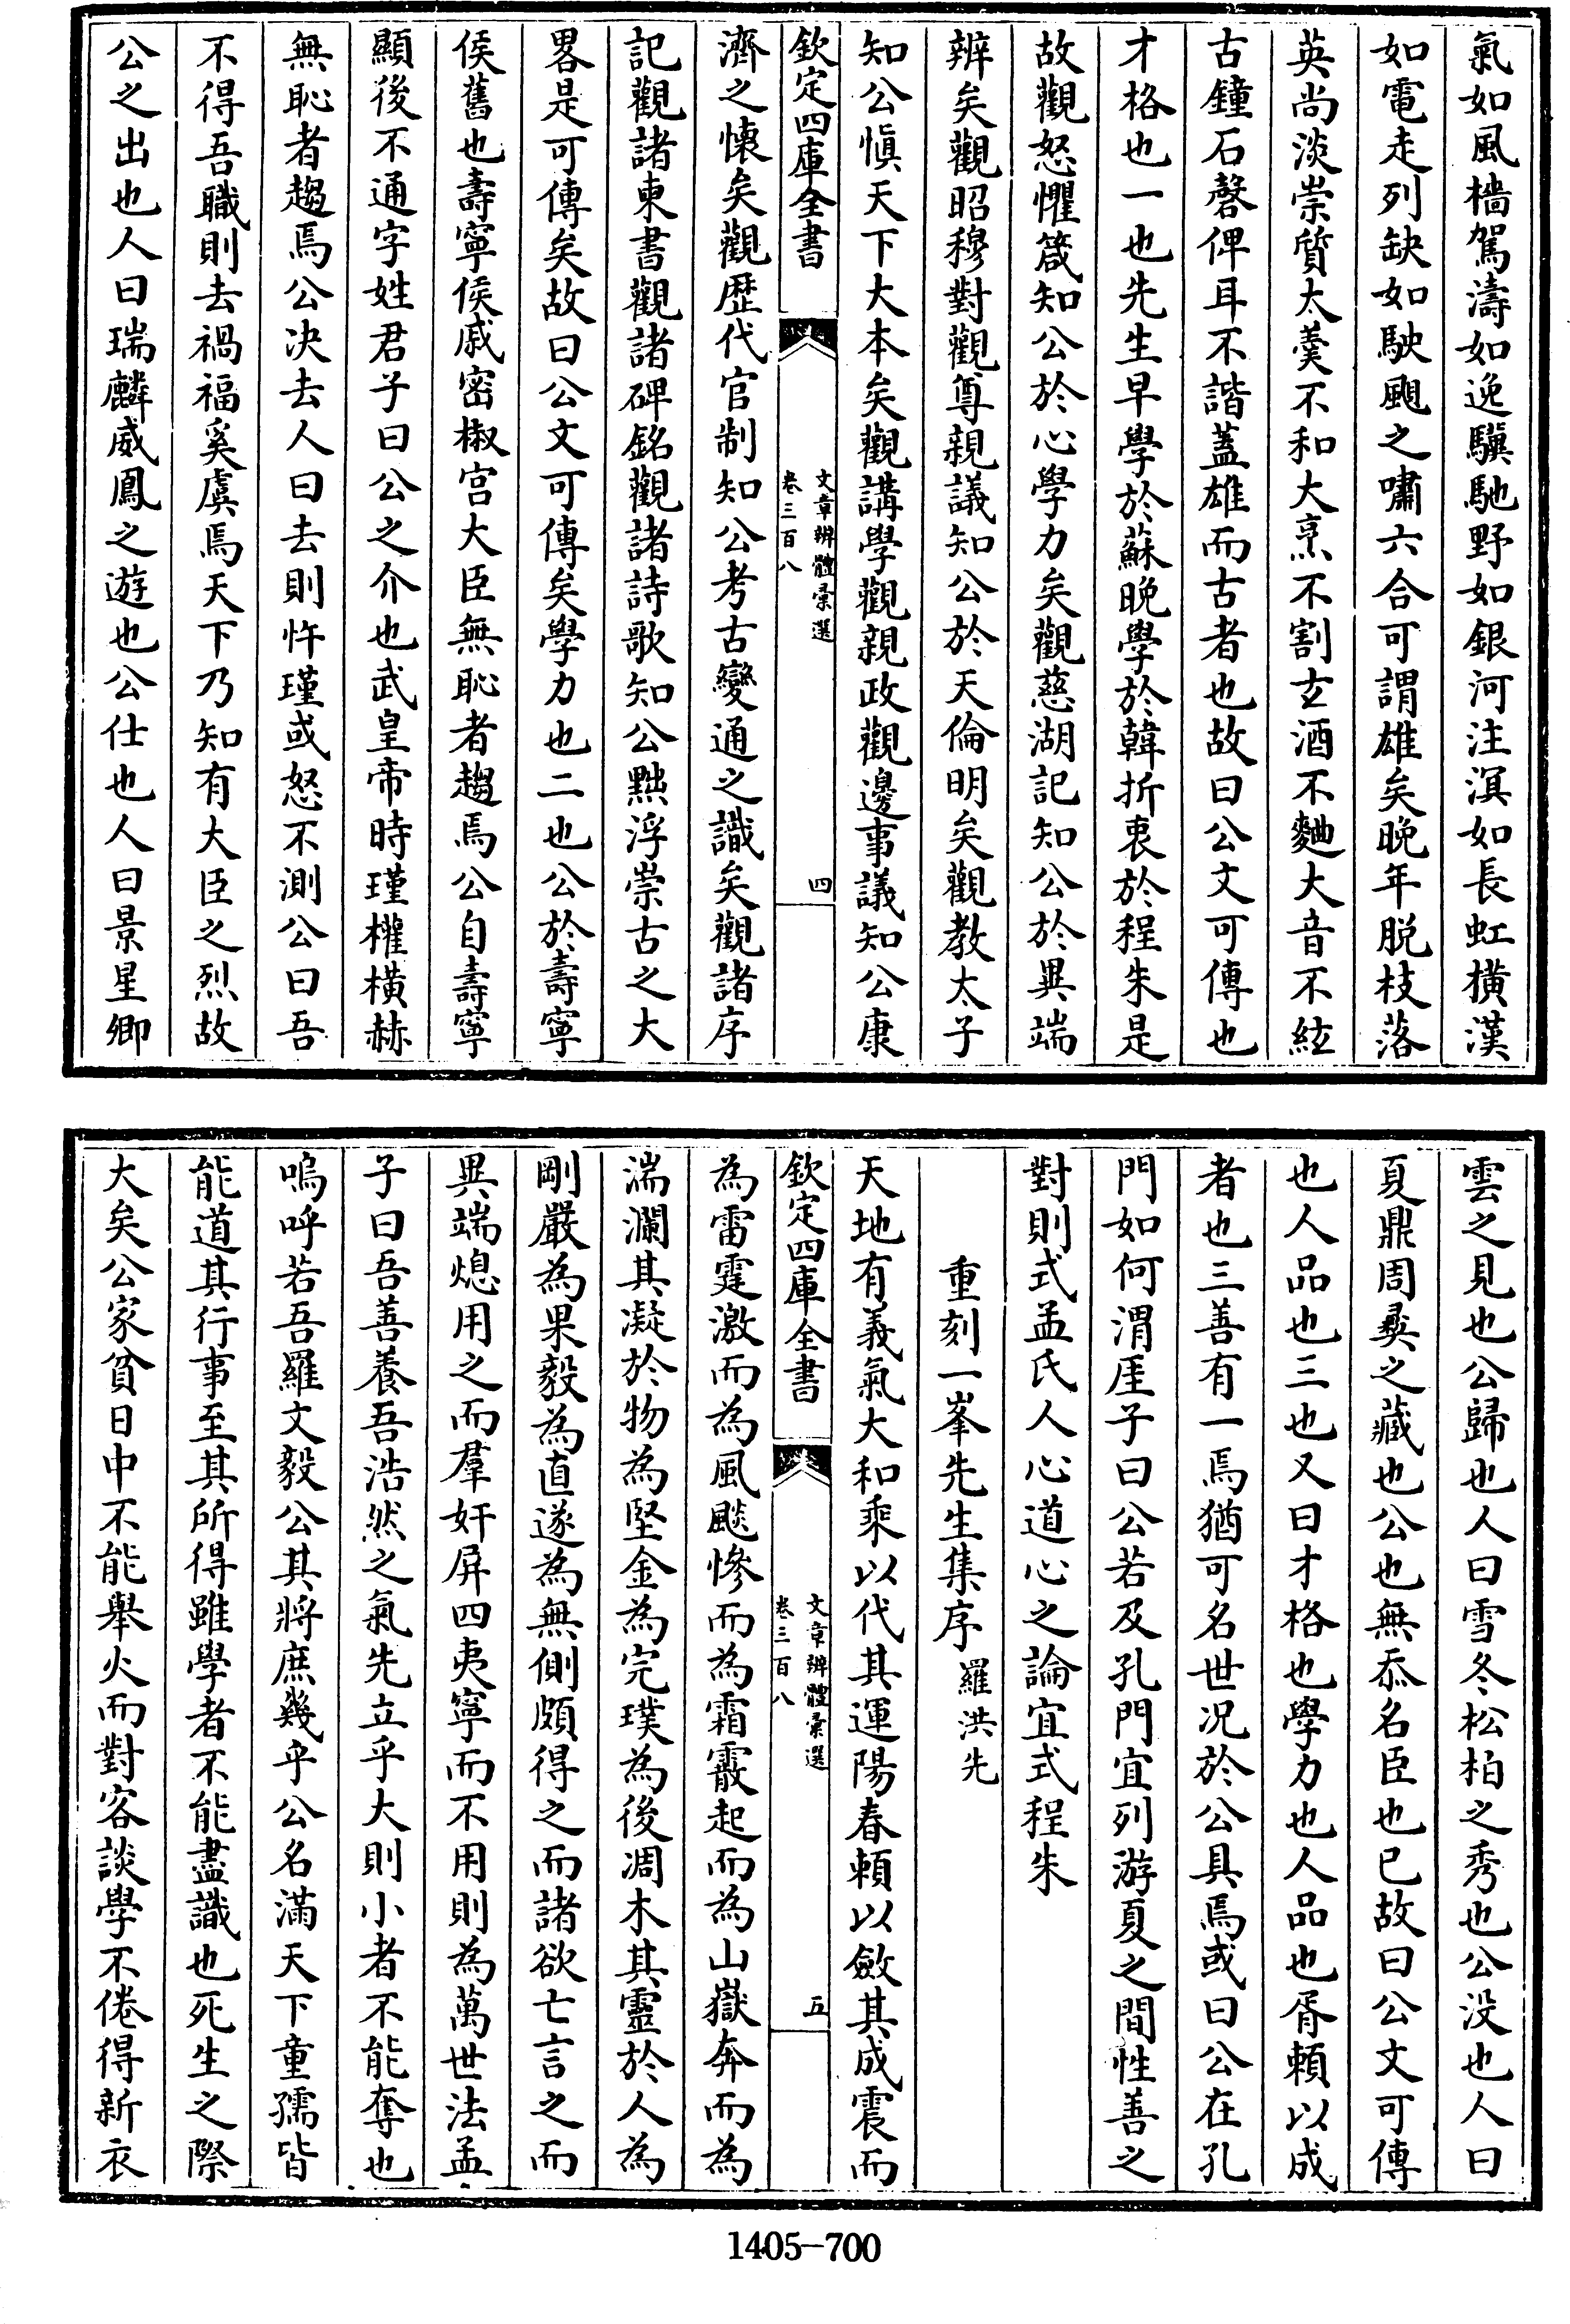 氣如風檣駕濤如逸驥馳野如銀河注溟如長虹橫漢
如電走列缺如駛颶之嘯六合可謂雄矣晚年脱枝落
英尚淡崇質太羹不和大烹不割玄酒不麯大音不絃
古鐘石磬俾耳不諧蓋雄而古者也故曰公文可傳也
才格也一也先生早學於蘇晚學於韓折衷於程朱是
故觀怒懼箴知公於心學力矣觀慈湖記知公於異端
辨矣觀昭穆對觀尊親議知公於天倫明矣觀教太子
知公愼天下大本矣觀講學觀親政觀邊事議知公康
欽定四庫全書
文章辨體彙選
卷三百八
四
濟之懷矣觀歷代官制知公考古變通之識矣觀諸序
記觀諸東書觀諸碑銘觀諸詩歌知公黜浮崇古之大
畧是可傳矣故曰公文可傳矣學力也二也公於壽寧
侯舊也壽寧侯戚密椒宫大臣無恥者趨焉公自壽寧
顯後不通字姓君子曰公之介也武皇帝時瑾權橫赫
無恥者趨焉公决去人曰去則忤瑾或怒不測公曰吾
不得吾職則去禍福奚虞焉天下乃知有大臣之烈故
公之出也人曰瑞麟威鳳之遊也公仕也人曰景星卿
雲之見也公歸也人曰雪冬松柏之秀也公没也人曰
夏鼎周彛之藏也公也無忝名臣也已故曰公文可傳
也人品也三也又曰才格也學力也人品也胥頼以成
者也三善有一焉猶可名世况於公具焉或曰公在孔
門如何渭厓子曰公若及孔門宜列游夏之間性善之
對則式孟氏人心道心之論宜式程朱
重刻一峯先生集序 羅洪先
天地有義氣大和乘以代其運陽春頼以斂其成震而
欽定四庫全書
文章辨體彙選
卷三百八
五
為雷霆激而為風颷慘而為霜霰起而為山嶽奔而為
湍瀾其凝於物為堅金為完璞為後凋木其靈於人為
剛嚴為果毅為直遂為無側頗得之而諸欲亡言之而
異端熄用之而羣奸屏四夷寧而不用則為萬世法孟
子曰吾善養吾浩然之氣先立乎大則小者不能奪也
嗚呼若吾羅文毅公其將庶幾乎公名滿天下童孺皆
能道其行事至其所得雖學者不能盡識也死生之際
大矣公家貧日中不能舉火而對客談學不倦得新衣
1405-700